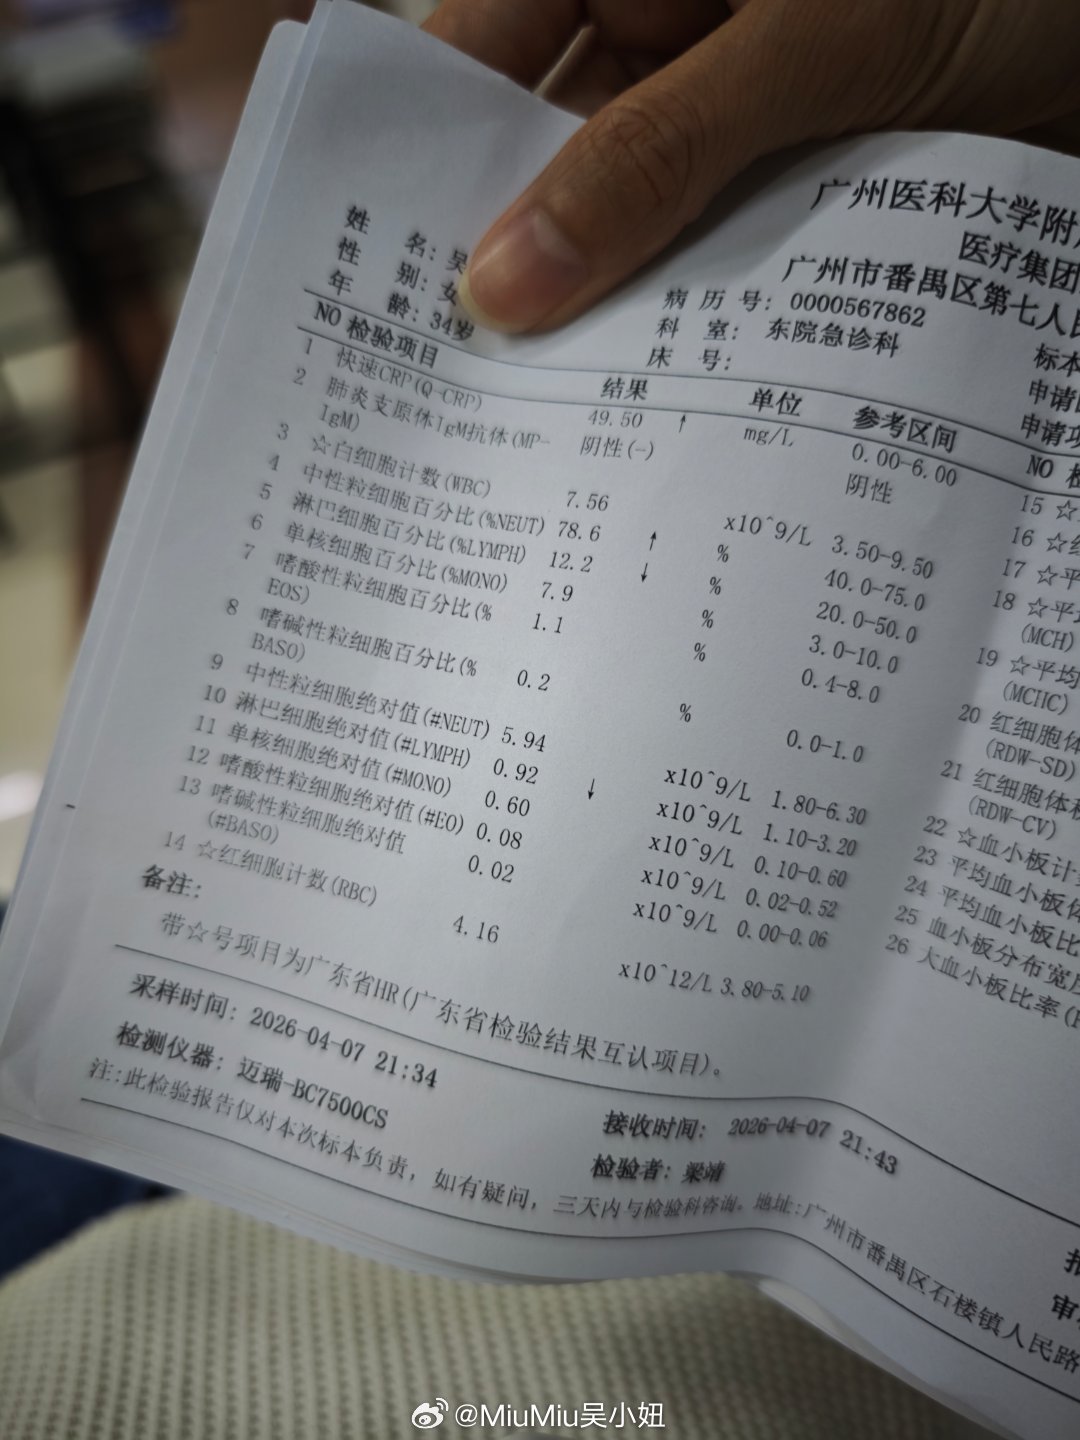 广州医科大学附
医疗集团
广州市番禺区第七人民
姓 名: 吴
性 别: 女
年 龄: 34岁
病 历 号: 0000567862
科 室: 东院急诊科
床 号:
标本
申请
申请项
NO 检验项目 结果 单位 参考区间
1 快速CRP(Q-CRP) 49.50 ↑ mg/L 0.00-6.00
2 肺炎支原体IgM抗体(MP-IgM) 阴性(-) 阴性
3 ☆白细胞计数(WBC) 7.56 x10^9/L 3.50-9.50
4 中性粒细胞百分比(%NEUT) 78.6 ↑ % 40.0-75.0
5 淋巴细胞百分比(%LYMPH) 12.2 ↓ % 20.0-50.0
6 单核细胞百分比(%MONO) 7.9 % 3.0-10.0
7 嗜酸性粒细胞百分比(%EOS) 1.1 % 0.4-8.0
8 嗜碱性粒细胞百分比(%BASO) 0.2 % 0.0-1.0
9 中性粒细胞绝对值(#NEUT) 5.94 x10^9/L 1.80-6.30
10 淋巴细胞绝对值(#LYMPH) 0.92 ↓ x10^9/L 1.10-3.20
11 单核细胞绝对值(#MONO) 0.60 x10^9/L 0.10-0.60
12 嗜酸性粒细胞绝对值(#EO) 0.08 x10^9/L 0.02-0.52
13 嗜碱性粒细胞绝对值(#BASO) 0.02 x10^9/L 0.00-0.06
14 ☆红细胞计数(RBC) 4.16 x10^12/L 3.80-5.10
NO 检
15 ☆
16 ☆
17 ☆平
18 ☆平均
(MCH)
19 ☆平均
(MCHC)
20 红细胞体
(RDW-SD)
21 红细胞体积
(RDW-CV)
22 ☆血小板计
23 平均血小板体
24 平均血小板比
25 血小板分布宽度
26 大血小板比率(
备注:
带☆号项目为广东省HR(广东省检验结果互认项目)。
采样时间: 2026-04-07 21:34
接收时间: 2026-04-07 21:43
检测仪器: 迈瑞-BC7500CS
检验者: 梁靖
注:此检验报告仅对本次标本负责, 如有疑问, 三天内与检验科咨询。地址:广州市番禺区石楼镇人民路
@MiuMiu吴小妞